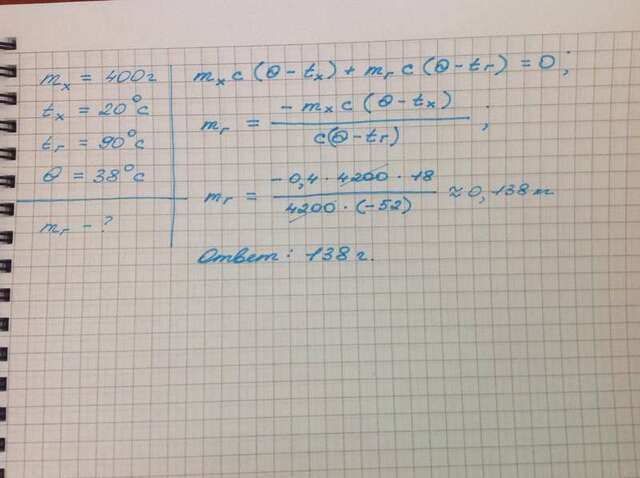 mₓ = 400г
tₓ = 20°c
tг = 90°c
θ = 38°c
mг - ?
mₓ c (θ - tₓ) + mг c (θ - tг) = 0;
mг = - mₓ c (θ - tₓ) / c(θ - tг) ;
mг = - 0,4 · 4200 · 18 / 4200 · (-52) ≈ 0,138 кг
Ответ: 138 г.